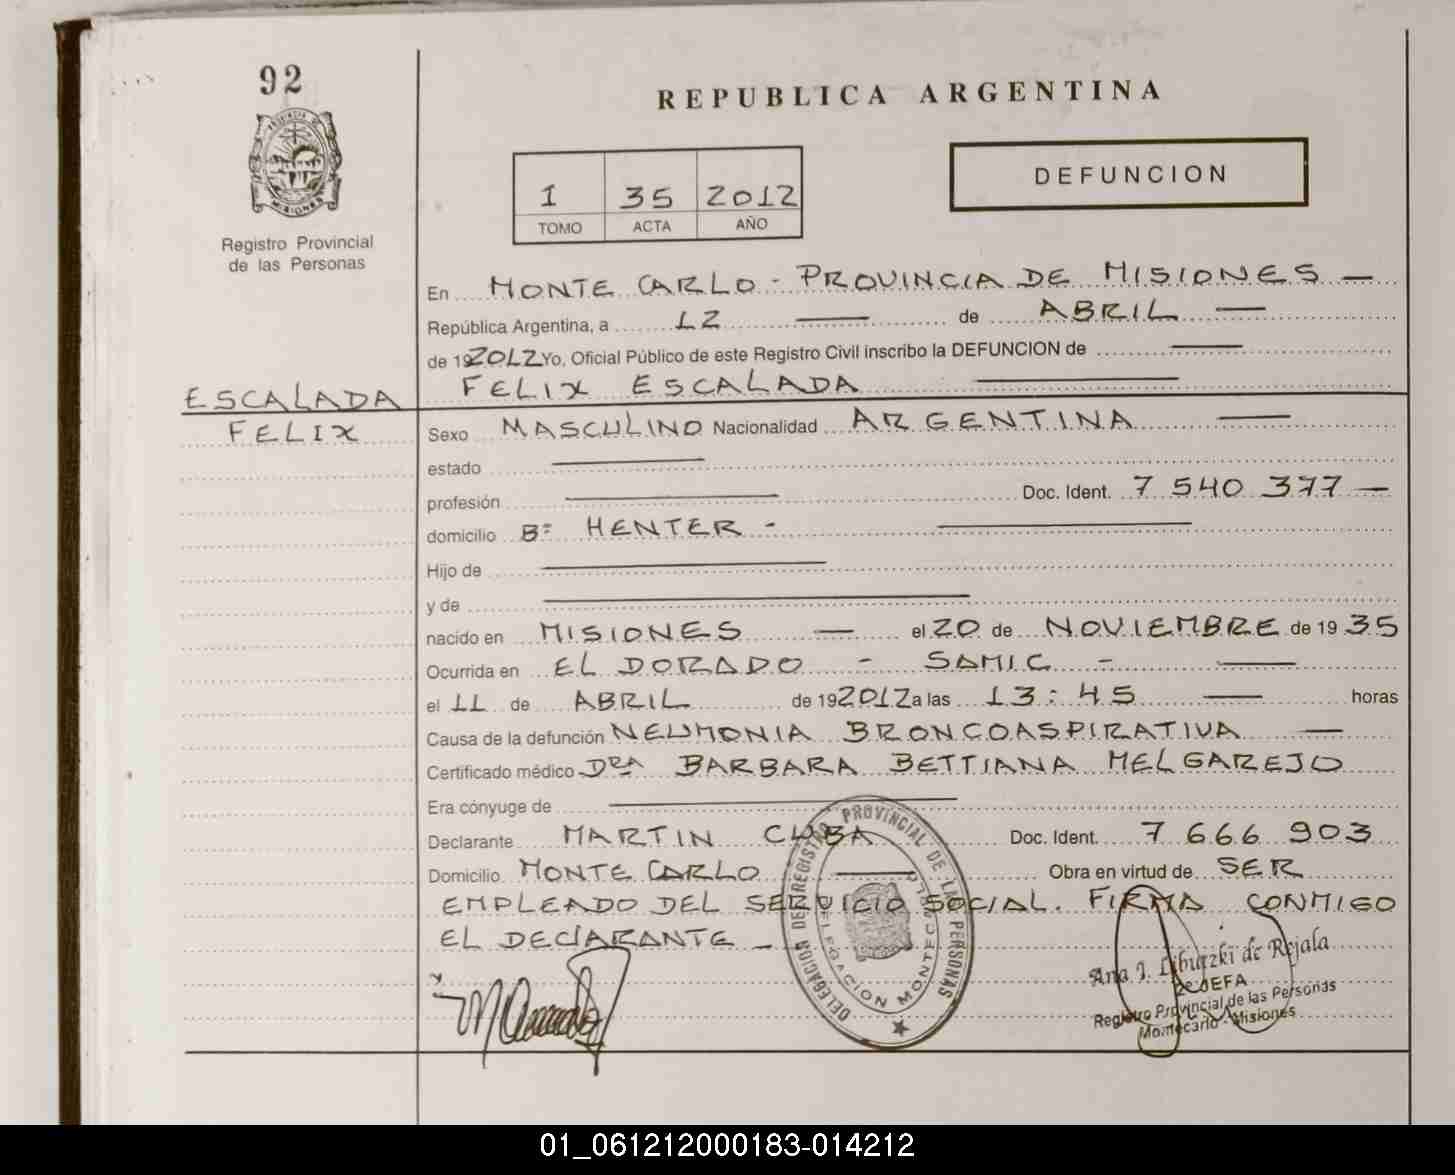 92
REPUBLICA ARGENTINA
PROVINCIA DE
MISIONES
Registro Provincial
de las Personas
1 35 2012
TOMO ACTA AÑO
DEFUNCION
En MONTE CARLO - PROVINCIA DE MISIONES —
República Argentina, a 12 — de ABRIL —
de 192012 Yo, Oficial Público de este Registro Civil inscribo la DEFUNCION de —
FELIX ESCALADA —
ESCALADA
FELIX
Sexo MASCULINO Nacionalidad ARGENTINA —
estado —
profesión — Doc. Ident. 7 540 377 —
domicilio Bº HENTER - —
Hijo de —
y de —
nacido en MISIONES — el 20 de NOVIEMBRE de 19 35
Ocurrida en EL DORADO - SAMIC - —
el 11 de ABRIL de 192012 a las 13:45 — horas
Causa de la defunción NEUMONIA BRONCOASPIRATIVA —
Certificado médico DRA BARBARA BETTIANA MELGAREJO
Era cónyuge de —
Declarante MARTIN CUBA Doc. Ident. 7 666 903
Domicilio MONTE CARLO — Obra en virtud de SER
EMPLEADO DEL SERVICIO SOCIAL. FIRMA CONMIGO
EL DECLARANTE -
DELEGACION DEL REGISTRO PROVINCIAL DE LAS PERSONAS
DELEGACION MONTECARLO
Ana J. de Rejala
JEFA
Registro Provincial de las Personas
Montecarlo - Misiones
01_061212000183-014212